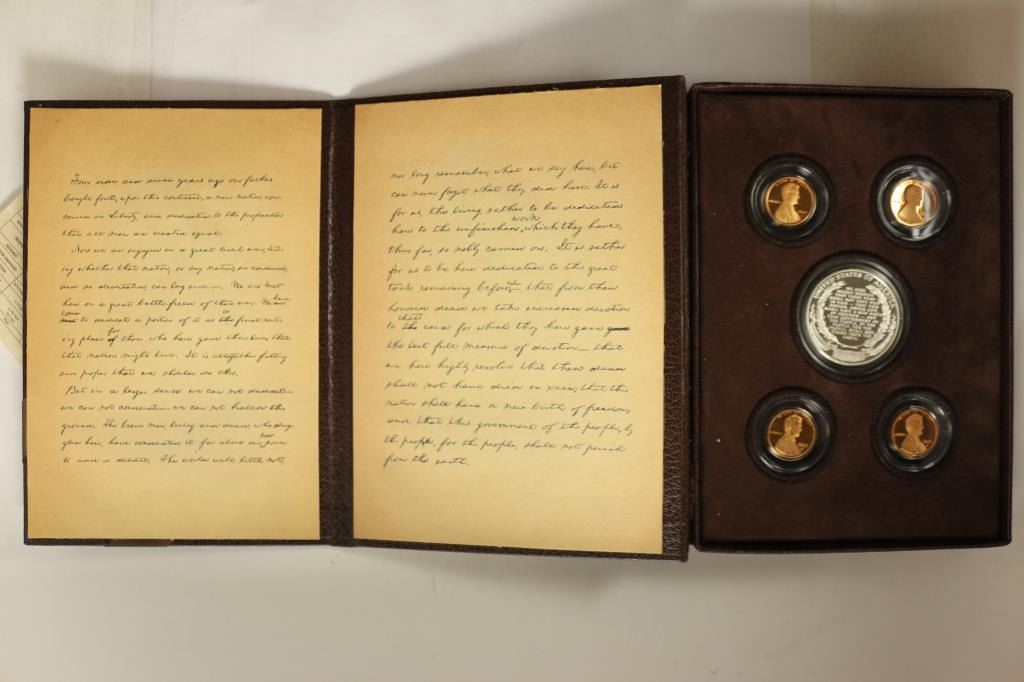 Four score and seven years ago our fathers
brought forth, upon this continent, a new nation, con-
ceived in Liberty, and dedicated to the proposition
that all men are created equal.
Now we are engaged in a great civil war, test-
ing whether that nation, or any nation, so conceived,
and so dedicated, can long endure. We are met
here on a great battlefield of that war. We have
come to dedicate a portion of it as a final rest-
ing place for those who here gave their lives that
that nation might live. It is altogether fitting
and proper that we should do this.
But in a larger sense we can not dedicate—
we can not consecrate—we can not hallow this
ground. The brave men, living and dead, who strug-
gled here, have consecrated it far above our poor power
to add or detract. The world will little note,
nor long remember, what we say here, but
can never forget what they did here. It is
for us, the living, rather to be dedicated
work
here to the unfinished which they have,
thus far, so nobly carried on. It is rather
for us to be here dedicated to the great
task remaining before us—that from these
honored dead we take increased devotion
that
to the cause for which they here gave
the last full measure of devotion—that
we here highly resolve that these dead
shall not have died in vain; that this
nation shall have a new birth of freedom;
and that this government of the people, by
the people, for the people, shall not perish
from the earth.
UNITED STATES OF AMERICA